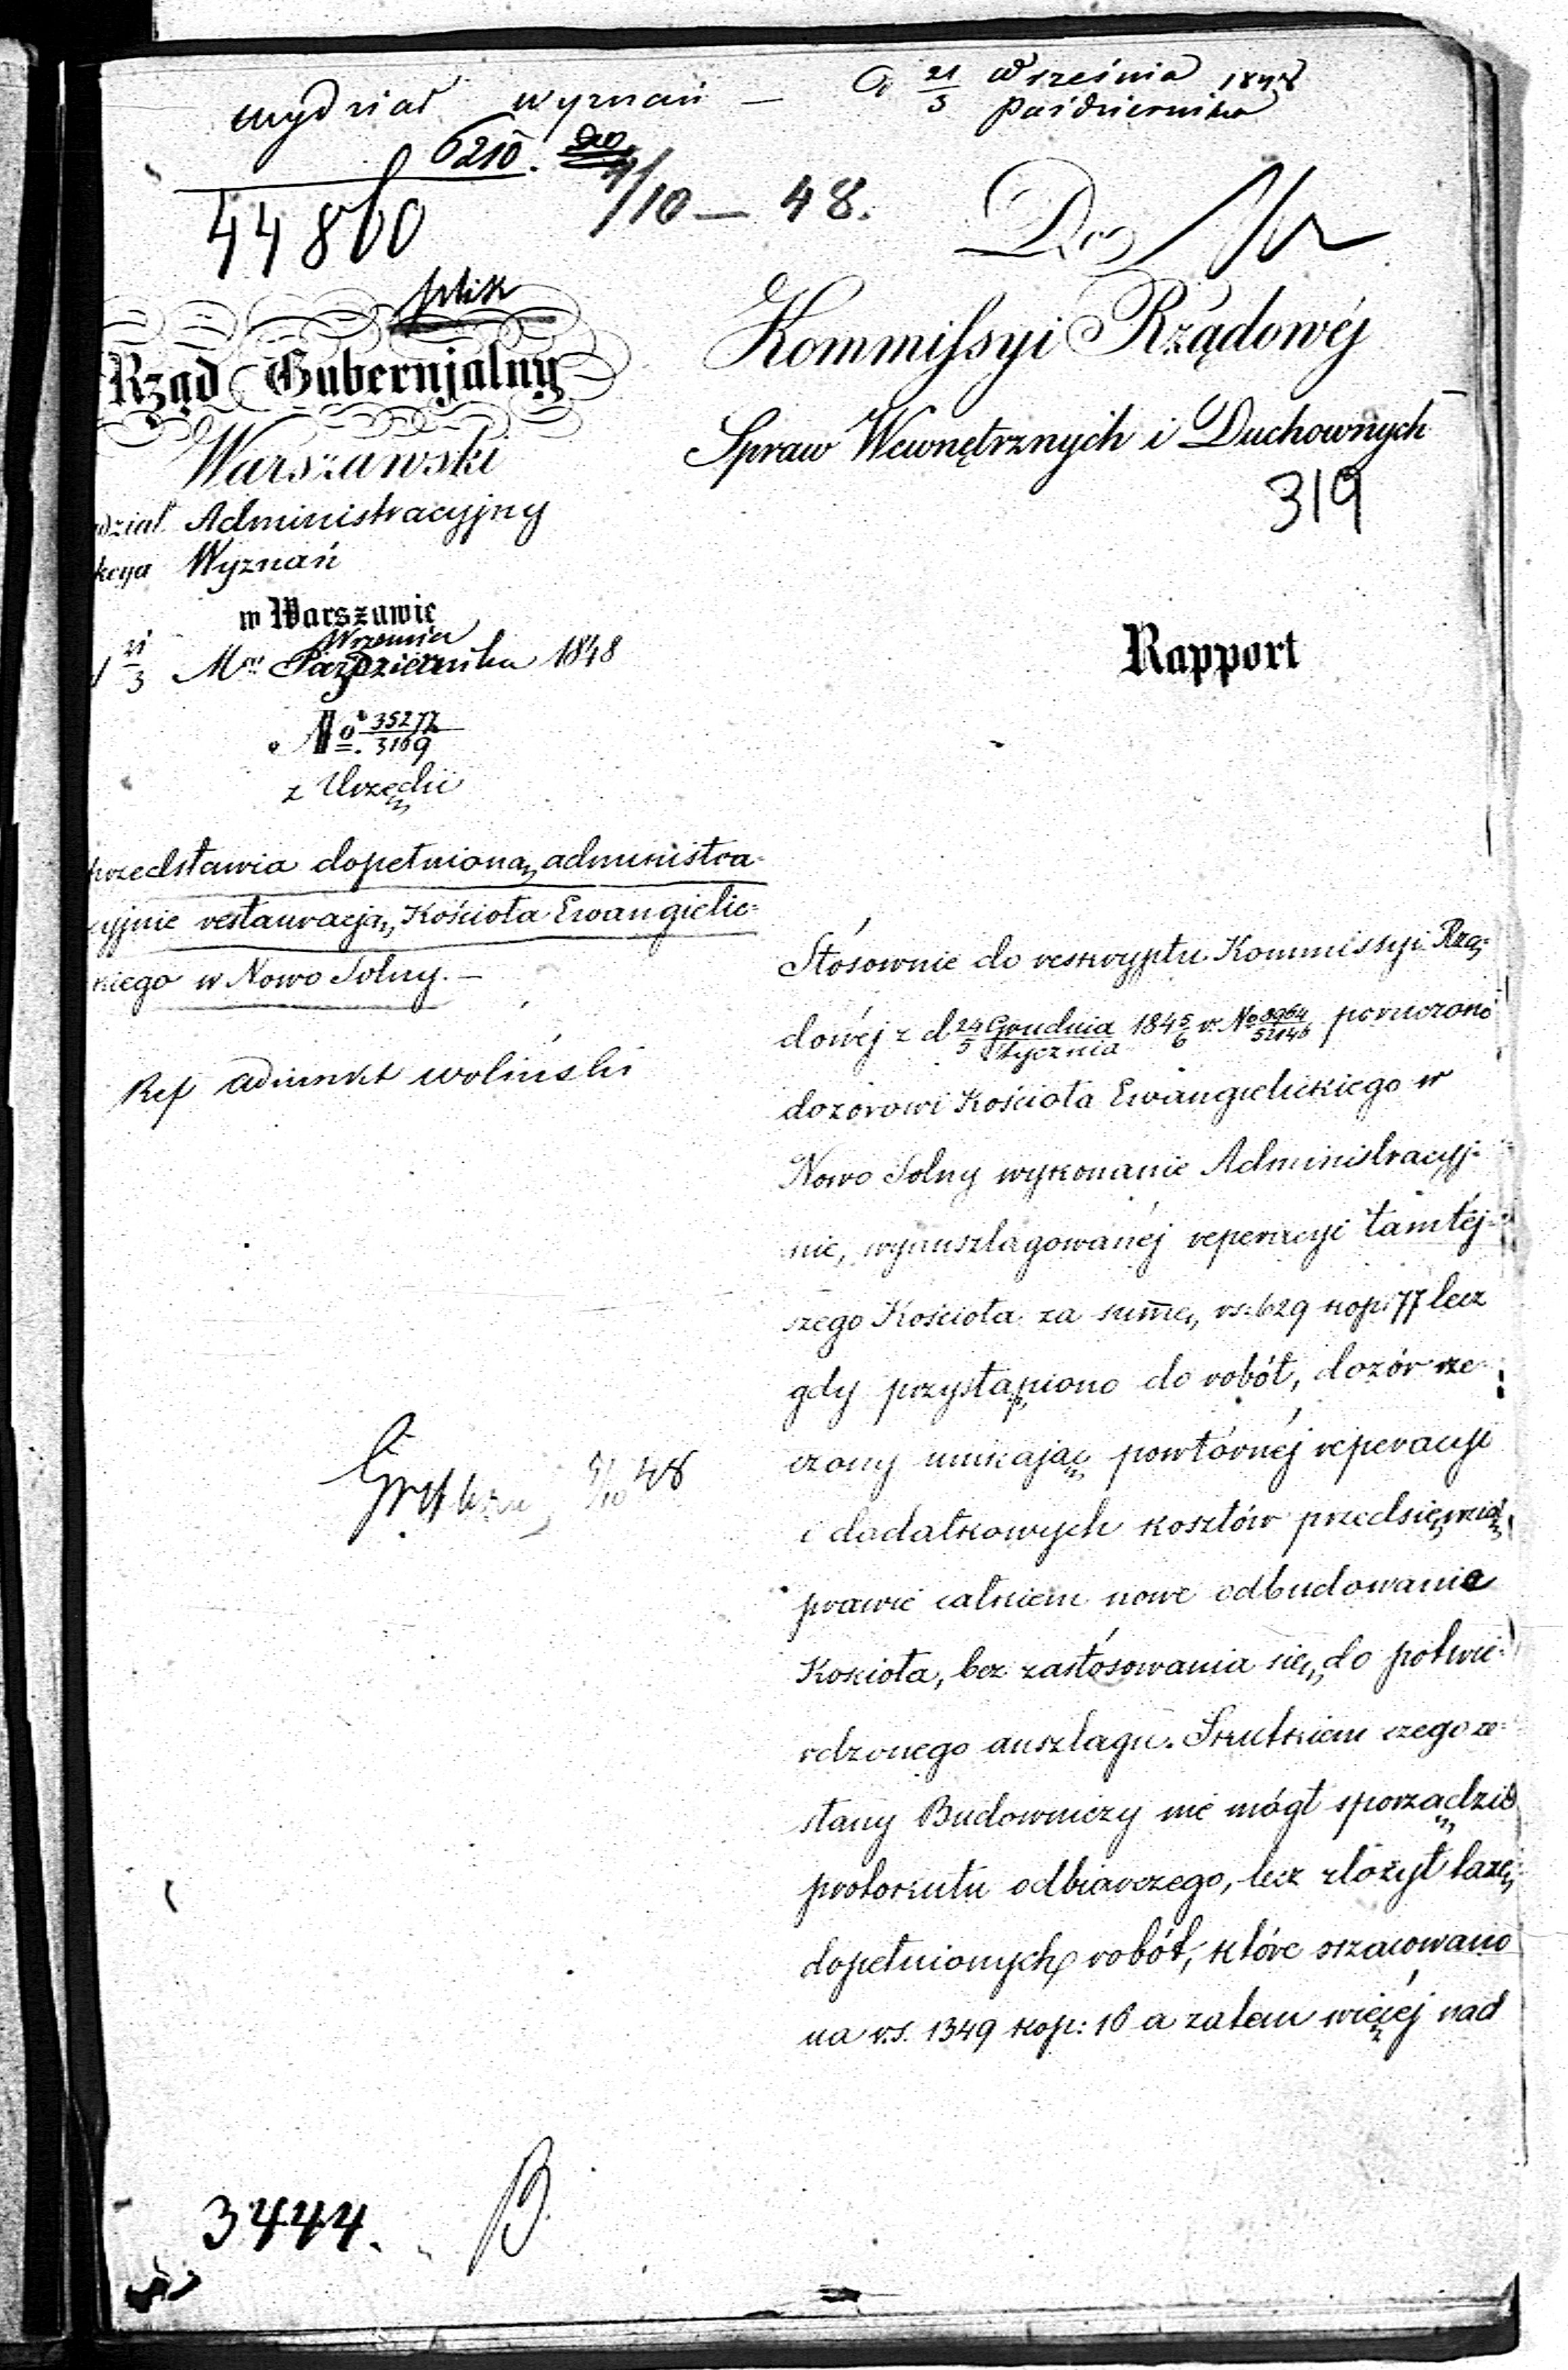 wydział wyznań — d 21/3 Września Października 1848
6210.
44860
/10 — 48.
Do
Rząd Gubernjalny
Warszawski
dział Administracyjny
kcya Wyznań
w Warszawie
d 21/3 Mca Września Października 1848
No 35277/3169
z Urzędu
Kommissyi Rządowéj
Spraw Wewnętrznych i Duchownych
319
Rapport
przedstawia dopełnioną administra-
cyjnie restauracją Kościoła Ewangielic-
kiego w Nowo Solny. —
Ref Adiunkt Woliński
48
Stósownie do reskryptu Kommissyi Rzą-
dowéj z d 24 Grudnia/5 Stycznia 1845/6 r. No 8964/52146 poruczono
dozorowi Kościoła Ewangielickiego w
Nowo Solny wykonanie Administracyj-
nie, wyanszlagowanéj reperacyi tamtéj-
szego Kościoła za summę rs: 629 kop: 77 lecz
gdy przystąpiono do robót, dozór rze-
czony unikając powtórnéj reperacyi
i dodatkowych kosztów przedsięwziął
prawie całkiem nowe odbudowanie
Kościoła, bez zastósowania się do potwie-
rdzonego anszlagu. Skutkiem czego ze-
słany Budowniczy nie mógł sporządzić
protokułu odbiorczego, lecz złożył taxę
dopełnionych robót, które oszacowano
na r.s. 1349 kop: 16 a zatem więcéj nad
3444.